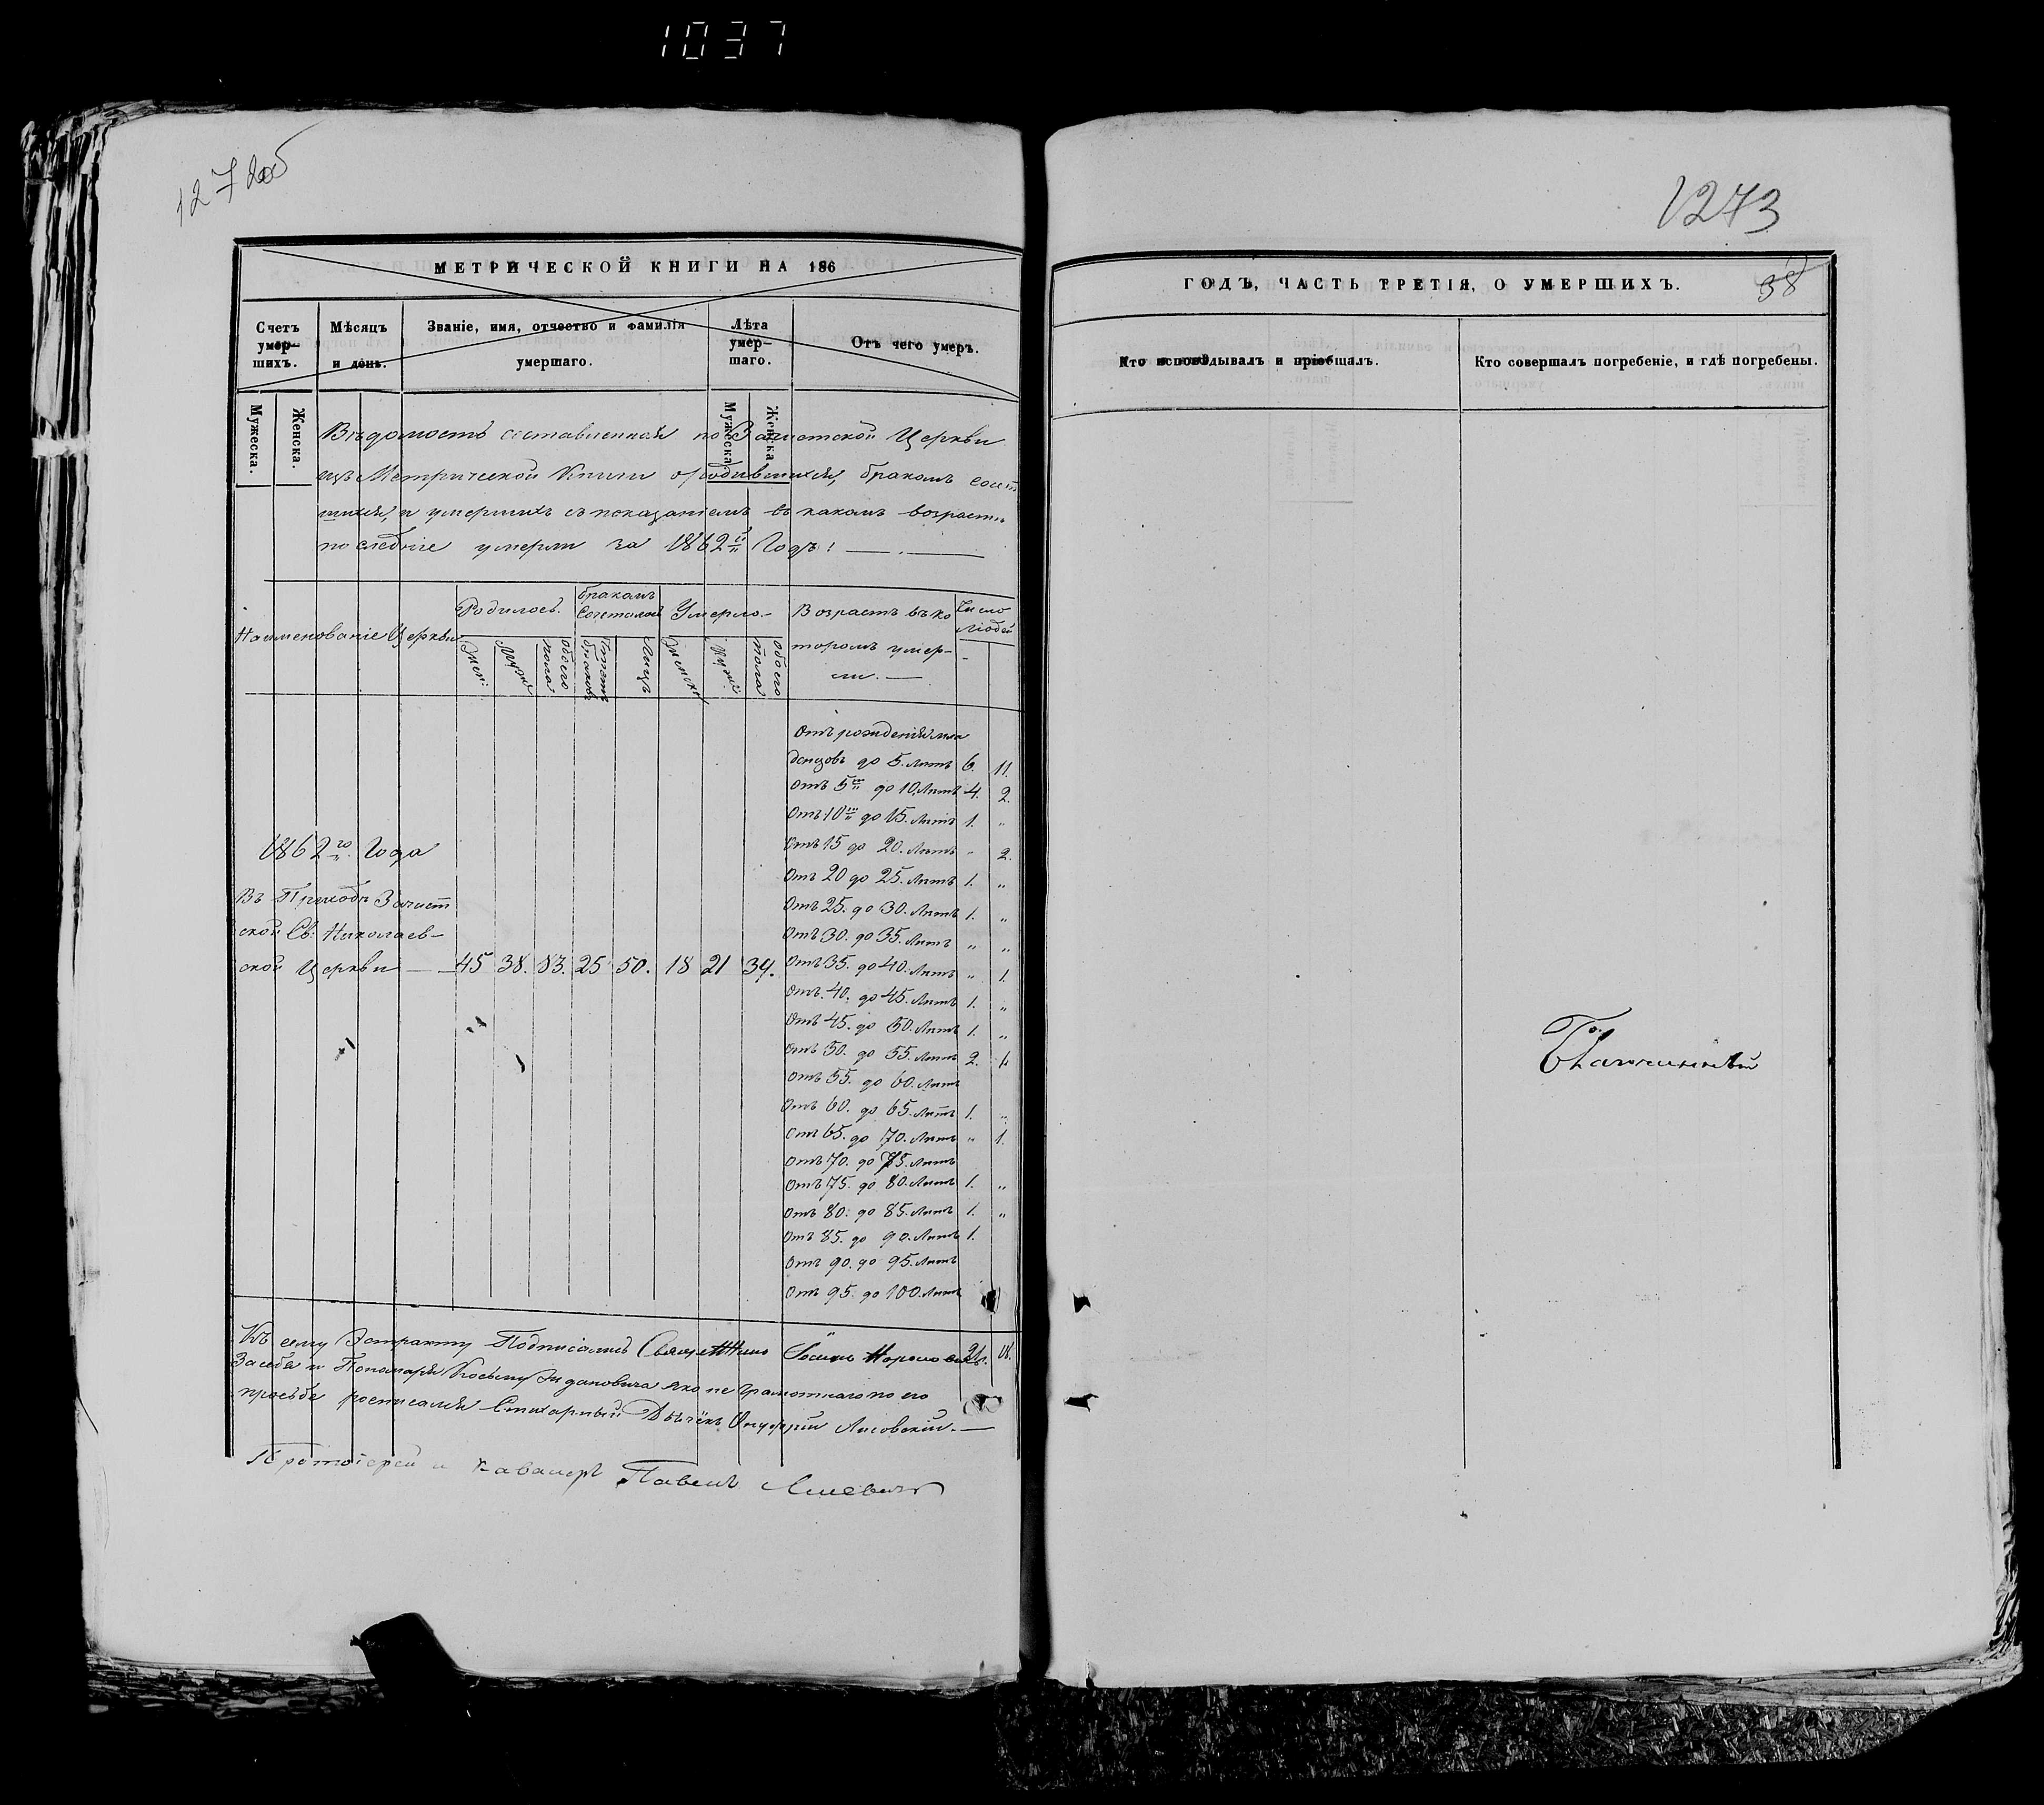 1037
1272об
МЕТРИЧЕСКОЙ КНИГИ НА 186
Счетъ умер-шихъ.
Мѣсяцъ и день.
Званіе, имя, отчество и фамилія умершаго.
Лѣта умер-шаго.
Отъ чего умеръ.
Мужеска.
Женска.
Мужеска.
Женска.
Вѣдомость составленная по Зачистской Церкви
изъ Метрической Книги о родившихся, бракомъ сочет
шихся, и умершихъ съ показаніемъ въ какомъ возрастѣ
послѣдніе умерли за 1862й Годъ:
Наименованіе Церкви
Родилось.
бракомъ Сочеталось
Умерло
Возрастъ въ ко
торомъ умер-
ли.
Число Людей
Женс:
Муже
обоего пола
браковъ
Лицъ
Женска
Муже
обоего пола
Отъ рожденія мла
денцовъ до 5. Лѣтъ 6. 11.
Отъ 5ти до 10. Лѣтъ 4. 2.
Отъ 10ти до 15. Лѣтъ 1. "
Отъ 15 до 20. Лѣтъ " 2.
Отъ 20 до 25. Лѣтъ 1. "
Отъ 25. до 30. Лѣтъ 1. "
Отъ 30. до 35. Лѣтъ " "
Отъ 35. до 40. Лѣтъ " 1.
Отъ 40. до 45. Лѣтъ 1. "
Отъ 45. до 50. Лѣтъ 1. "
Отъ 50. до 55. Лѣтъ 2. 1.
Отъ 55. до 60. Лѣтъ
Отъ 60. до 65. Лѣтъ 1. "
Отъ 65. до 70. Лѣтъ " 1.
Отъ 70. до 75. Лѣтъ
Отъ 75. до 80. Лѣтъ 1. "
Отъ 80. до 85. Лѣтъ 1. "
Отъ 85. до 90. Лѣтъ 1.
Отъ 90. до 95. Лѣтъ
Отъ 95. до 100. Лѣтъ
1862го Года
Въ Приходѣ Зачист
ской Св: Николаев-
ской Церкви 45 38. 83. 25 50. 18 21 39.
21. 18.
Къ сему Экстракту Подписались
За себя и Пономаря Косьму Ждановича яко не Грамотнаго по его
просьбѣ росписался Стихарный Дьячекъ Онуфрій Лисовскій.
Протоіерей и Кавалеръ Павелъ
1273
38
ГОДЪ, ЧАСТЬ ТРЕТІЯ, О УМЕРШИХЪ.
Кто исповѣдывалъ и пріобщалъ.
Кто совершалъ погребеніе, и гдѣ погребены.